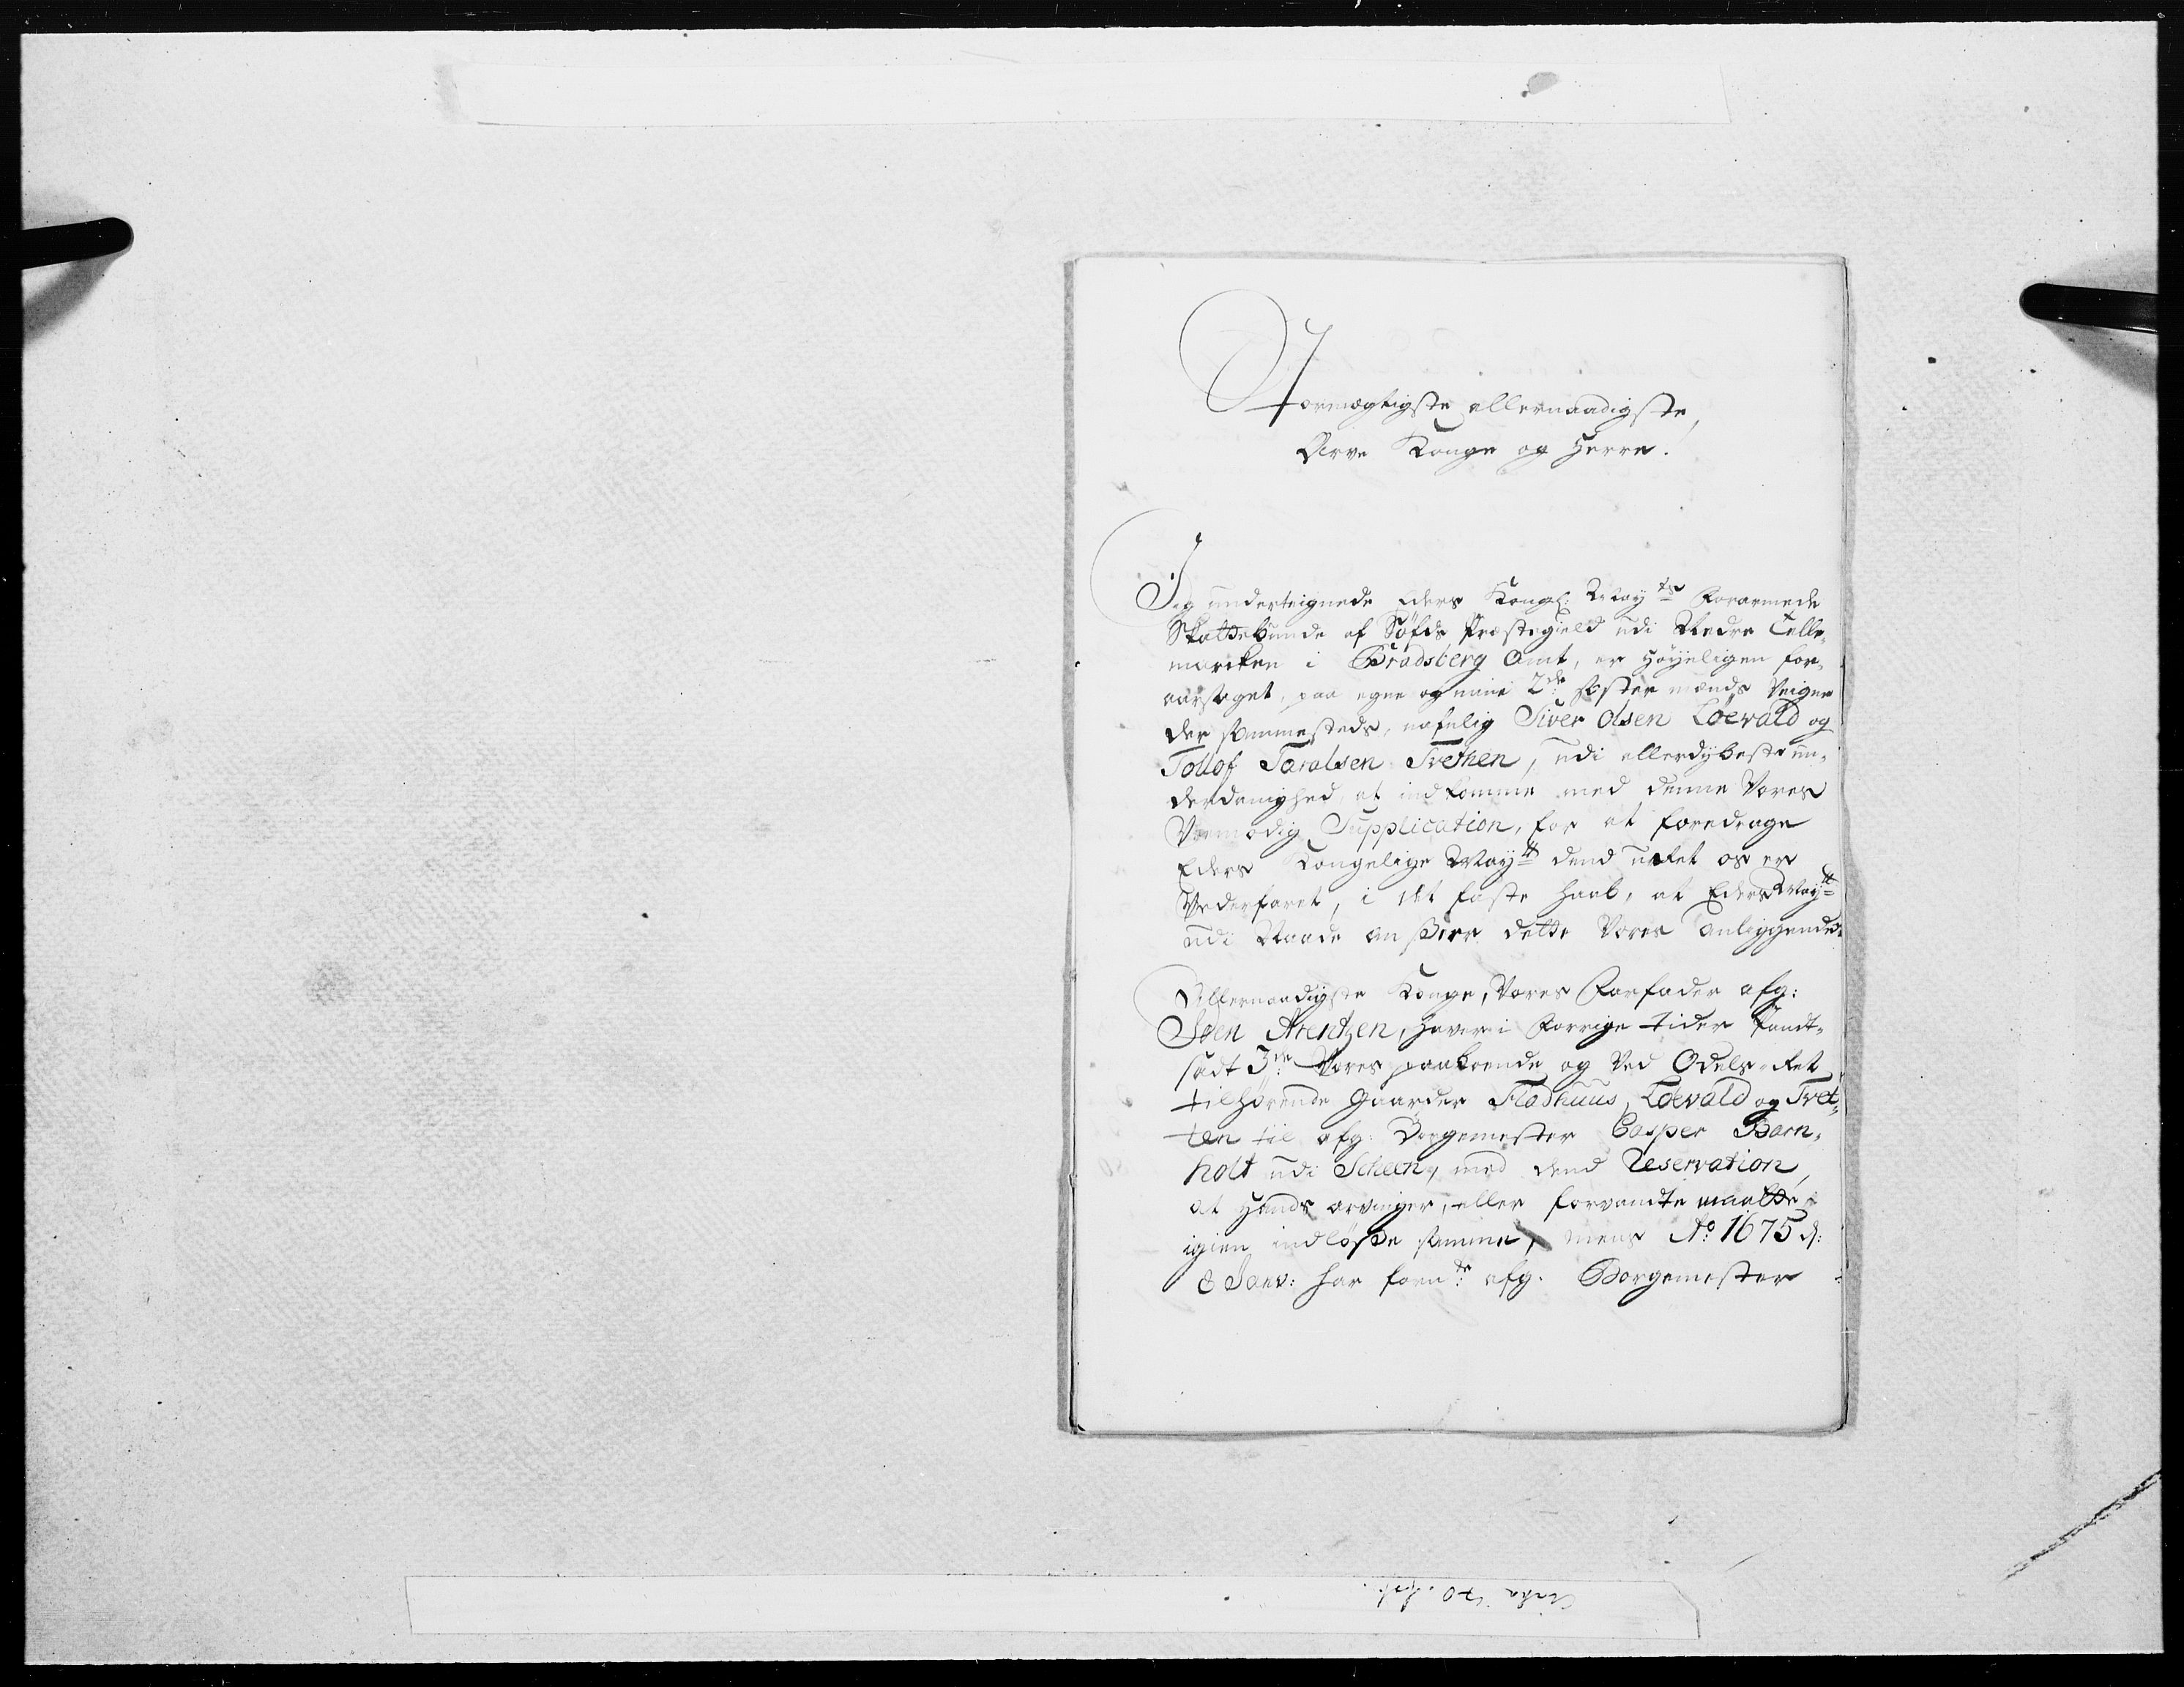 Stormægtigste allernaadigste,
Arve Konge og Herre.
Jeg underteignede Eders Kongl: May^ts Forarmede
Skattebunde af Søfde Præstegield udi Nedre Telle-
marcken i Bradsberg Amt, er høyeligen for-
aarsaget, paa egne og mine 2de Søster mænds Veigne
der sammesteds, nafnlig Siver Olsen Loevald og
Tollof Taralsen Tvethen, udi allerdybeste un-
derdanighed at indkomme med denne Vores
Vemodig Supplication, for at foredrage
Eders Kongelige May^tt dend uret os er
Vederfaret, i dt faste Haab, at Eders May^tt
udi Naade ansser dette Vores Anliggende:
Allernaadigste Konge, Vores Farfader afg:
Søen Arentzen, haver i Forrige tider Pandt-
sadt 3de Vores paaboende og Ved Odels-Ret
tilhørende Gaarder Fladhuus, Loevald og Tvet-
ten til afg: Borgemester Casper Barn-
holt udi Scheen, med dend Reservation,
at Hands arvinger, eller forvandte maatte
igien indløsse samme, mens A° 1675 d:
8 Janv: har foern^de afg. Borgemester
Cirka 70. Fol.